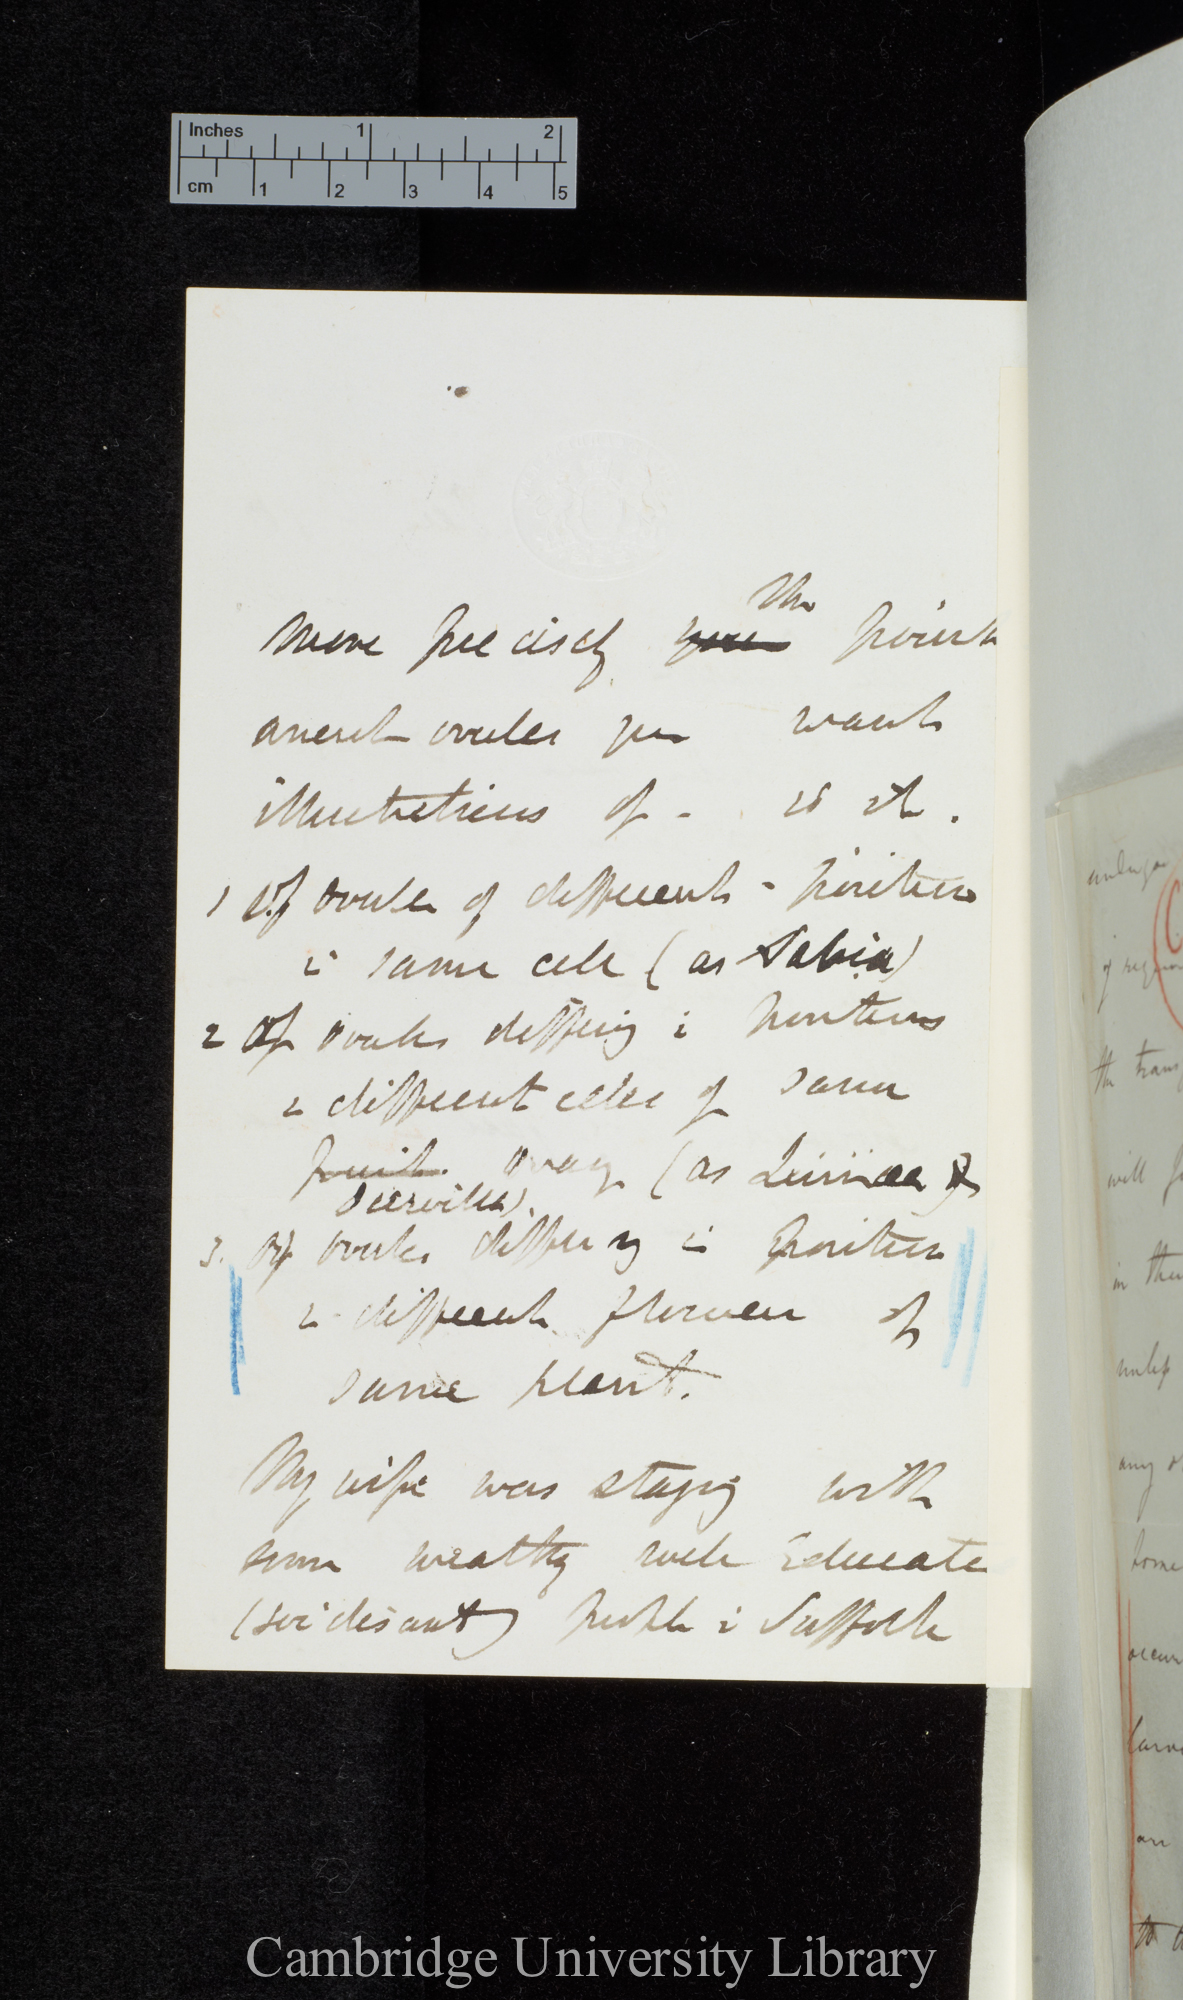 Inches 1 2
cm 1 2 3 4 5
the
more precisely your points
anent ovules you want
illustrations of - is it.
1 of ovules of different - position
in same cell (as Sabia)
2 of ovules differing in positions
in different cells of same
fruit. ovary (as Linnæa &
Diervilla).
3. of ovules differing in position
in different flowers of
same plant.
My wife was staying with
some wealthy well educate
(soi disant) people in Suffolk
the trans
will
in the
any
home
an
to
Cambridge University Library